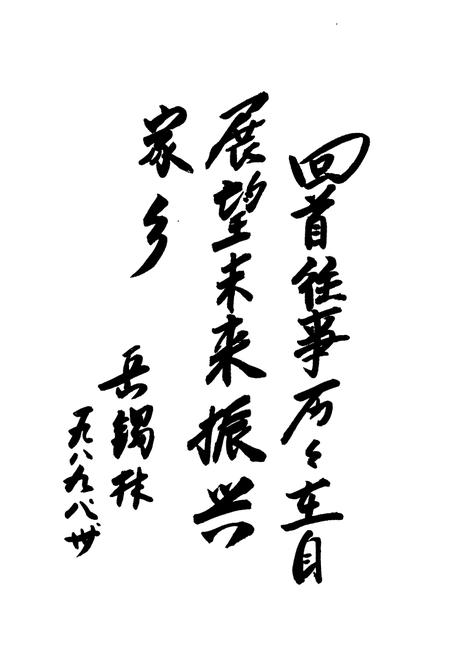 回首往事历々在目
展望未来振兴
家乡
岳锡林
一九八九、八、卅